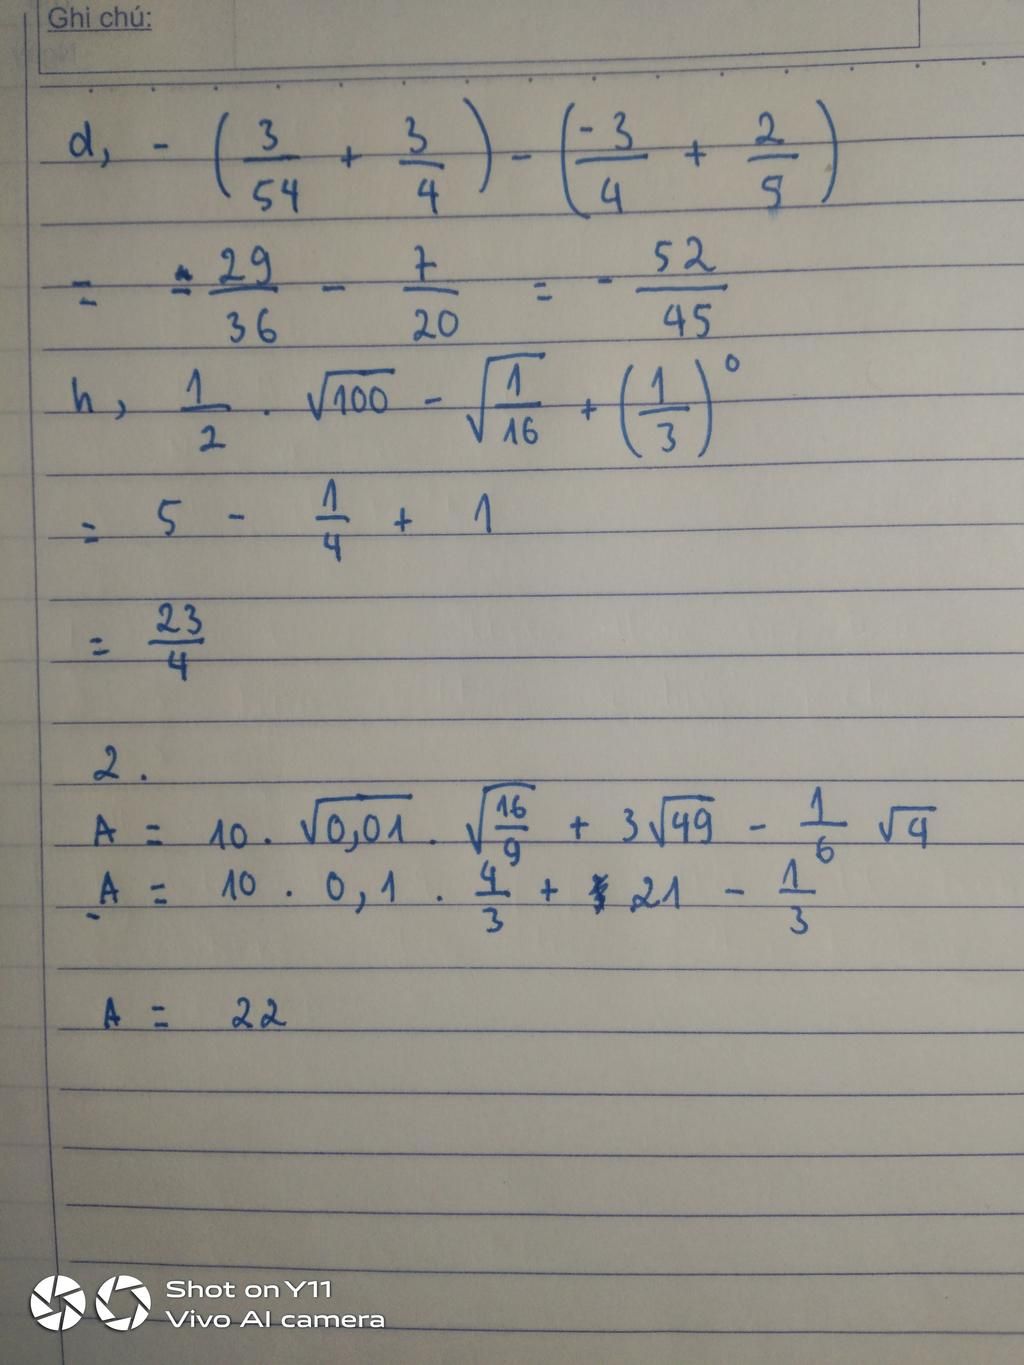 Ghi chú:
d, - (3/54 + 3/4) - (-3/4 + 2/5)
= - 29/36 - 7/20 = - 52/45
h, 1/2 . √100 - √(1/16) + (1/3)⁰
= 5 - 1/4 + 1
= 23/4
2.
A = 10 . √0,01 . √(16/9) + 3√49 - 1/6 √4
A = 10 . 0,1 . 4/3 + 21 - 1/3
A = 22
Shot on Y11
Vivo AI camera